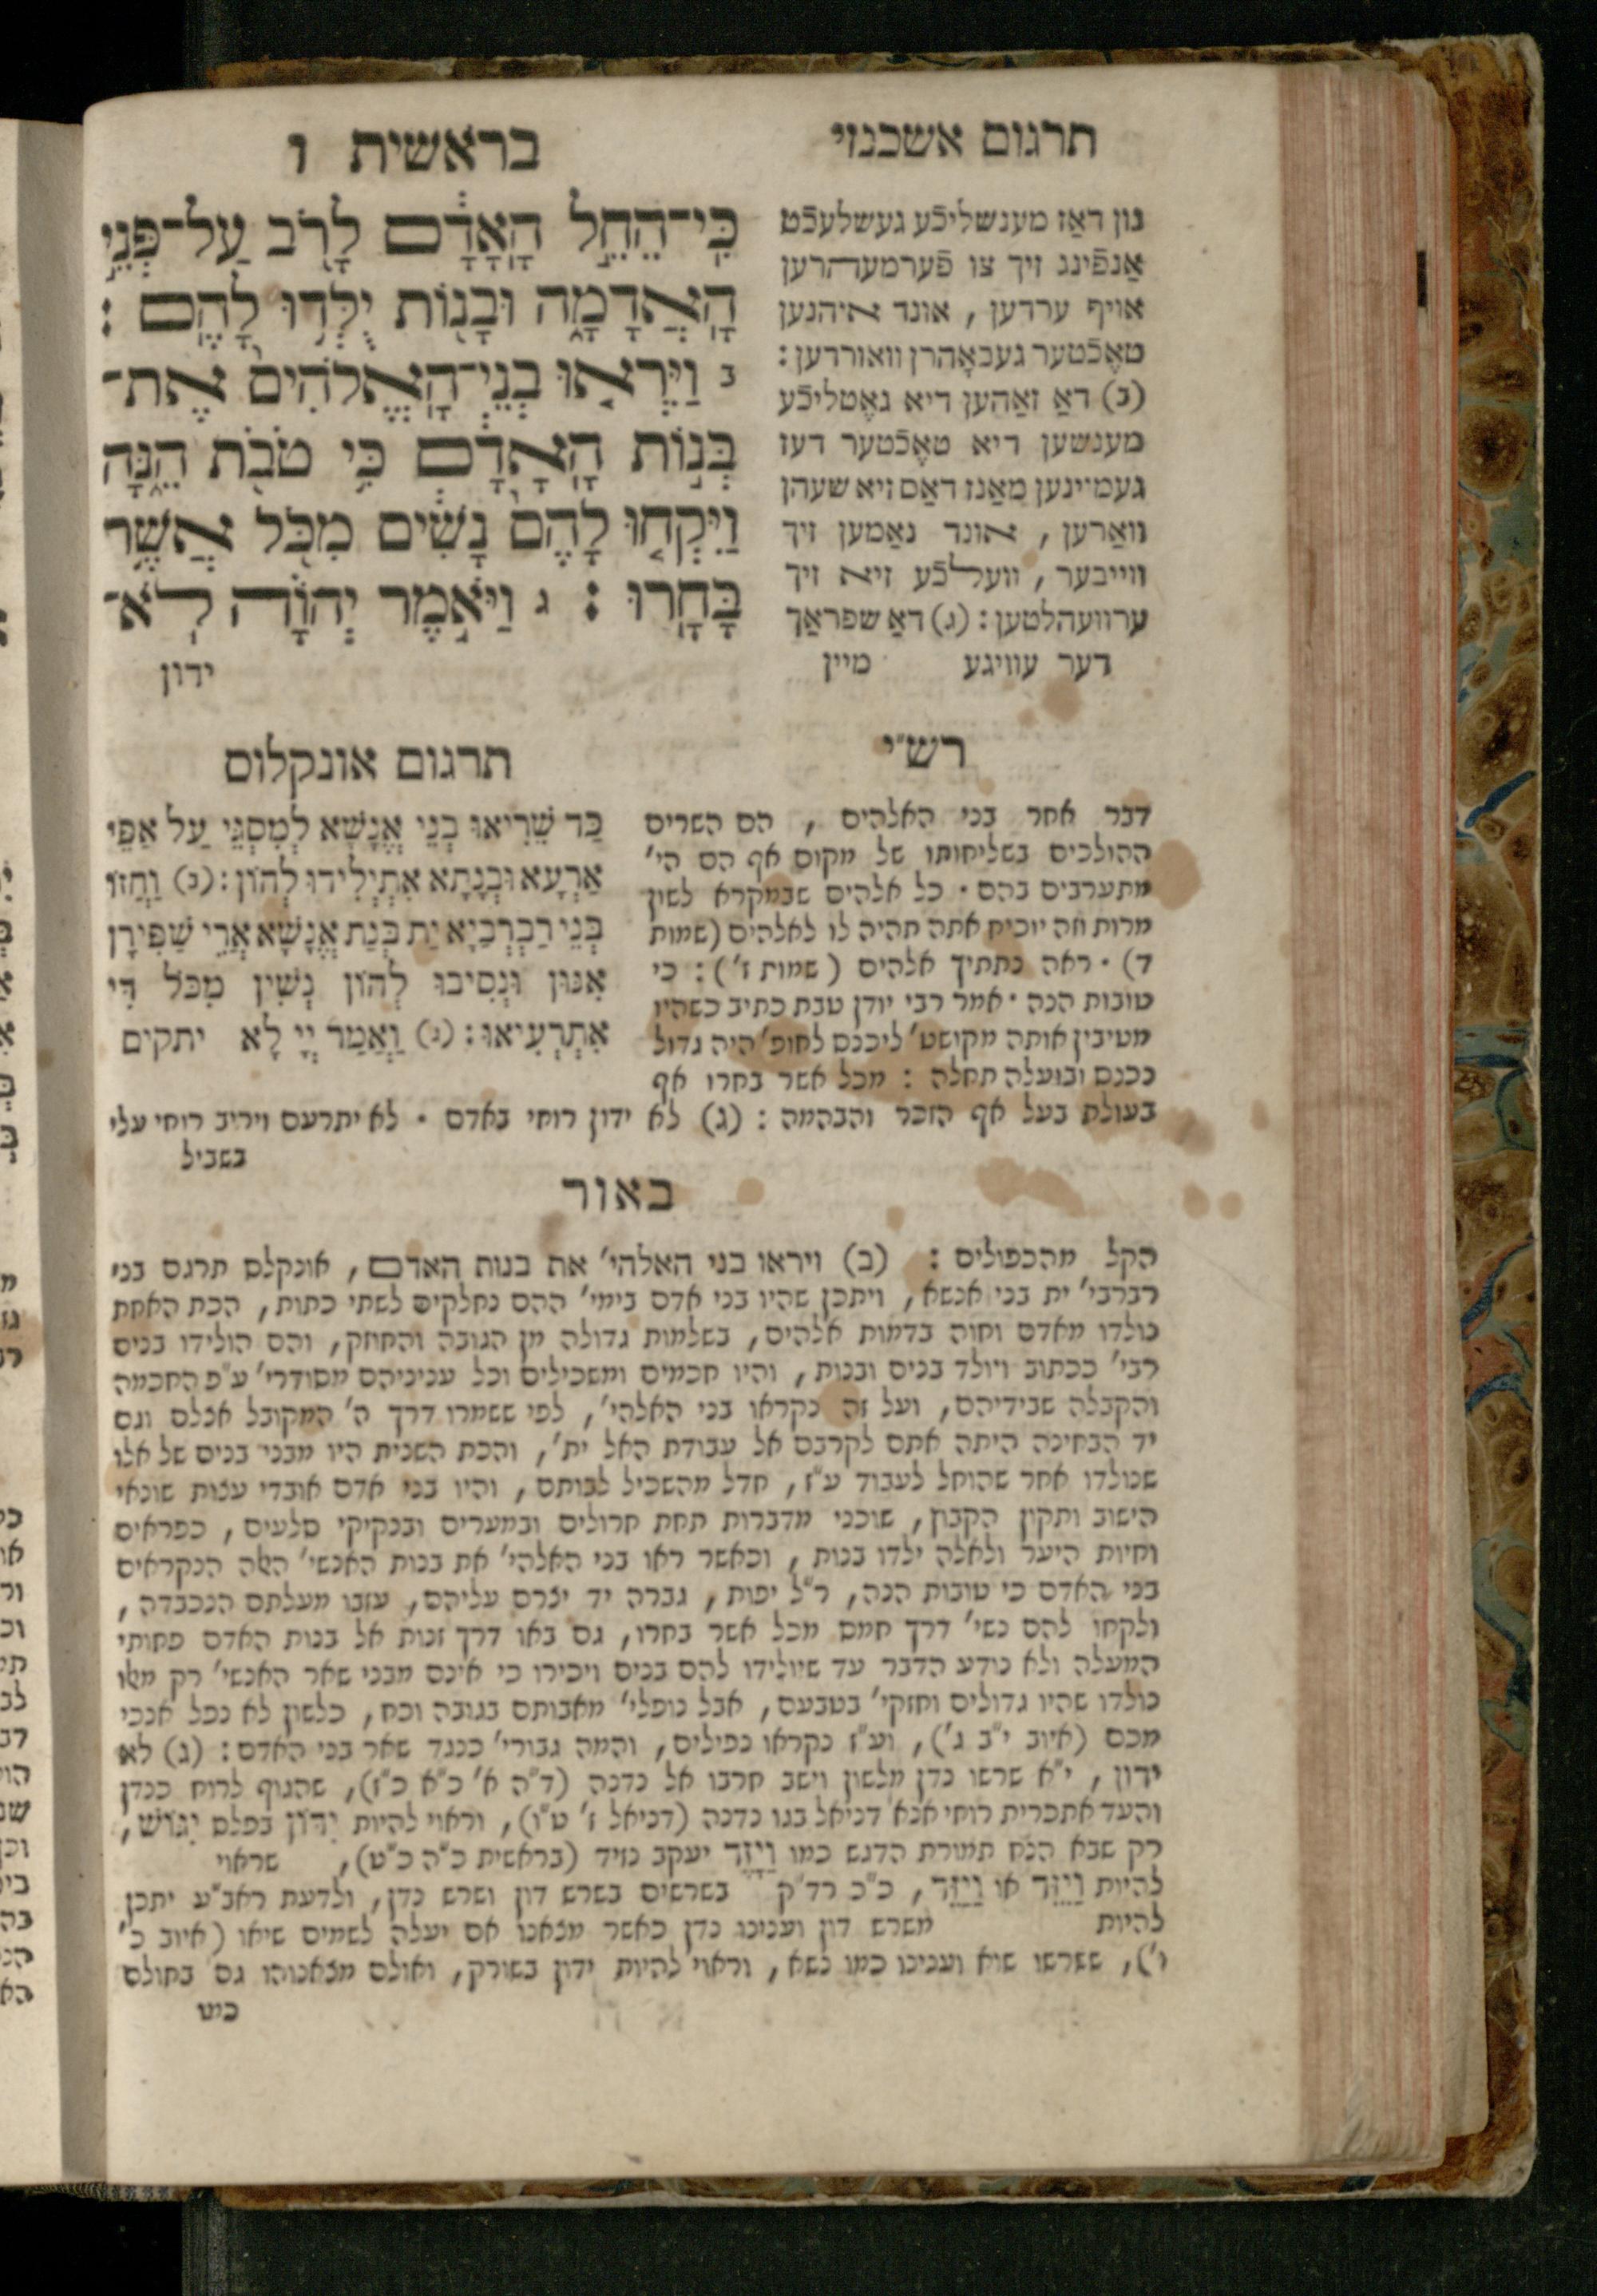 בראשית ו
כִּי־הֵחֵ֣ל הָֽאָדָ֔ם לָרֹ֖ב עַל־פְּנֵ֣י
הָֽאֲדָמָ֑ה וּבָנ֖וֹת יֻלְּד֥וּ לָהֶֽם :
ב וַיִּרְא֤וּ בְנֵֽי־הָֽאֱלֹהִים֙ אֶת־
בְּנ֣וֹת הָֽאָדָ֔ם כִּ֥י טֹבֹ֖ת הֵ֑נָּה
וַיִּקְח֤וּ לָהֶם֙ נָשִׁ֔ים מִכֹּ֖ל אֲשֶׁ֥ר
בָּחָֽרוּ : ג וַיֹּ֣אמֶר יְהוָֹ֗ה לֹֽא־
ידון
תרגום אשכנזי
נון דאַז מענשליכֿע געשלעכֿט
אַנפֿינג זיך צו פֿערמעהרען
אויף ערדען , אונד איהנען
טאֶכֿטער געבאָהרן וואורדען :
(ב) דאַ זאַהען דיא גאֶטליכֿע
מענשען דיא טאֶכֿטער דעז
געמיינען מאַנז דאַס זיא שעהן
וואַרען , אונד נאַמען זיך
ווייבער , וועלכֿע זיא זיך
ערוועהלטען : (ג) דאַ שפראַך
דער עוויגע מיין
רש״י
דבר אחר בני האלהים , הם השרים
ההולכים בשליחותו של מקום אף הם הי׳
מתערבים בהם · כל אלהים שבמקרא לשון
מרות וזה יוכיח אתה תהיה לו לאלהים (שמות
ד) · ראה נתתיך אלהים (שמות ז׳) : כי
טובות הנה · אמר רבי יודן טבת כתיב כשהיו
מטיבין אותה מקושט׳ ליכנס לחופ׳ היה גדול
נכנס ובועלה תחלה : מכל אשר בחרו אף
בעולת בעל אף הזכר והבהמה : (ג) לא ידון רוחי באדם · לא יתרעם ויריב רוחי עלי
בשביל
תרגום אונקלוס
כַּד שָׁרִיאוּ בְנֵי אֱנָשָׁא לְמִסְגֵּי עַל אַפֵּי
אַרְעָא וּבְנָתָא אִתְיְלִידוּ לְהוֹן : (ב) וַחֲזוֹ
בְּנֵי רַבְרְבַיָא יַת בְּנַת אֱנָשָׁא אֲרֵי שַׁפִּירָן
אִנּוּן וּנְסִיבוּ לְהוֹן נְשִׁין מִכֹּל דִּי
אִתְרְעִיאוּ : (ג) וַאֲמַר יְיָ לָא יתקים
באור
הקל מהכפולים : (ב) ויראו בני האלהי׳ את בנות האדם , אונקלס תרגם בני
רברבי׳ ית בני אנשא , ויתכן שהיו בני אדם בימי׳ ההם נחלקים לשתי כתות , הכת האחת
נולדו מאדם וחוה בדמות אלהים , בשלמות גדולה מן הגובה והחוזק , והם הולידו בנים
רבי׳ ככתוב ויולד בנים ובנות , והיו חכמים ומשכילים וכל עניניהם מסודרי׳ ע״פ החכמה
והקבלה שבידיהם , ועל זה נקראו בני האלהי׳ , לפי ששמרו דרך ה׳ המקובל אצלם וגם
יד הבחינה היתה אתם לקרבם אל עבודת האל ית׳ , והכת השנית היו מבני בנים של אלו
שנולדו אחר שהוחל לעבוד ע״ז , חדל מהשכיל לבותם , והיו בני אדם אובדי עצות שונאי
הישוב ותקון הקבוץ , שוכני מדברות תחת חרולים ובמערים ובנקיקי סלעים , כפראים
וחיות היער ולאלה ילדו בנות , וכאשר ראו בני האלהי׳ את בנות האנשי׳ האלה הנקראים
בני האדם כי טובות הנה , ר״ל יפות , גברה יד יצרם עליהם , עזבו מעלתם הנכבדה ,
ולקחו להם נשי׳ דרך חמס מכל אשר בחרו , גם באו דרך זנות אל בנות האדם פחותי
המעלה ולא נודע הדבר עד שיולידו להם בנים ויכירו כי אינם מבני שאר האנשי׳ רק מאלו
נולדו שהיו גדולים וחזקי׳ בטבעם , אבל נופלי׳ מאבותם בגובה וכח , כלשון לא נפל אנכי
מכם (איוב י״ב ג׳) , וע״ז נקראו נפילים , והמה גבורי׳ כנגד שאר בני האדם : (ג) לא
ידון , י״א שרשו נדן מלשון וישב חרבו אל נדנה (ד״ה א׳ כ״א כ״ז) , שהגוף לרוח כנדן
והעד אתכרית רוחי אנא דניאל בגו נדנה (דניאל ז׳ ט״ו) , וראוי להיות יִדּוֹן בפלס יִגּוֹשׁ ,
רק שבא הנח תמורת הדגש כמו וַיָזֶד יעקב נזיד (בראשית כ״ה כ״ט) , שראוי
להיות וַיַּזֵּד או וַיַּזֶּד , כ״כ רד״ק בשרשים בשרש דון ושרש נדן , ולדעת ראב״ע יתכן
להיות משרש דון וענינו נדן כאשר מצאנו אם יעלה לשמים שיאו (איוב כ׳
ו׳) , ששרשו שוא וענינו כמו נשא , וראוי להיות ידון בשורק , ואולם מצאנוהו גם בחולם
כמו